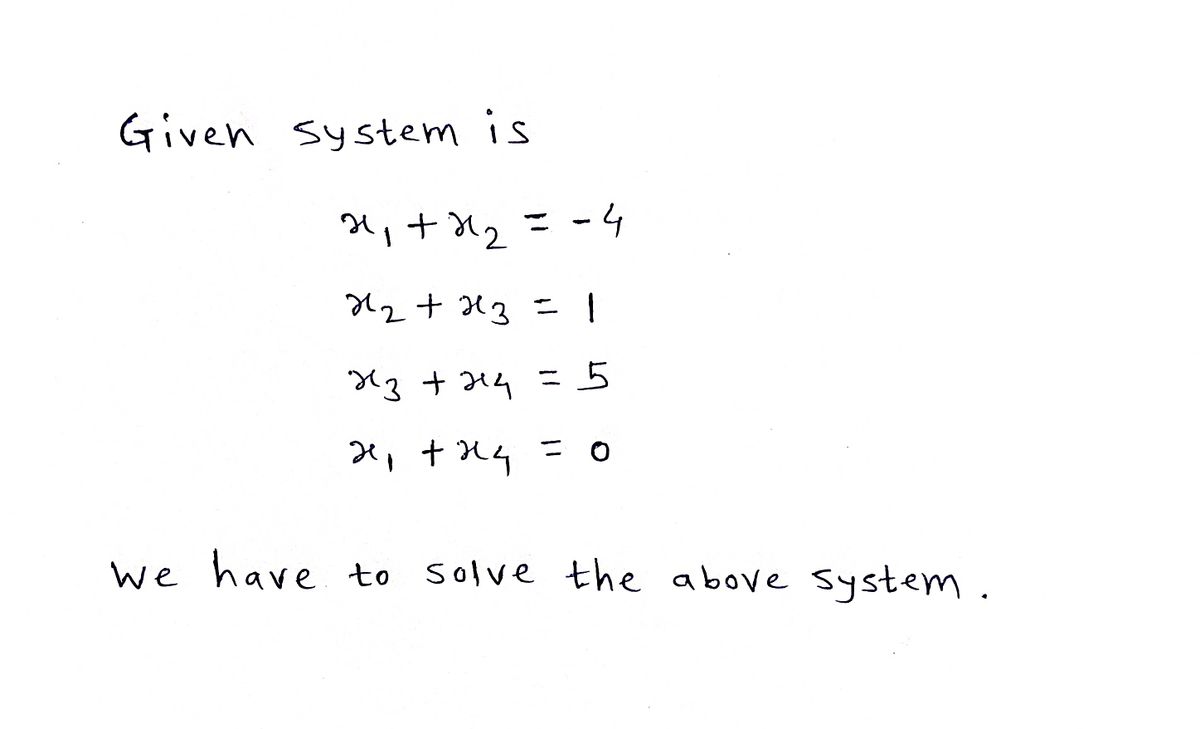 Given system is
x₁ + x₂ = -4
x₂ + x₃ = 1
x₃ + x₄ = 5
x₁ + x₄ = 0
We have to solve the above system.